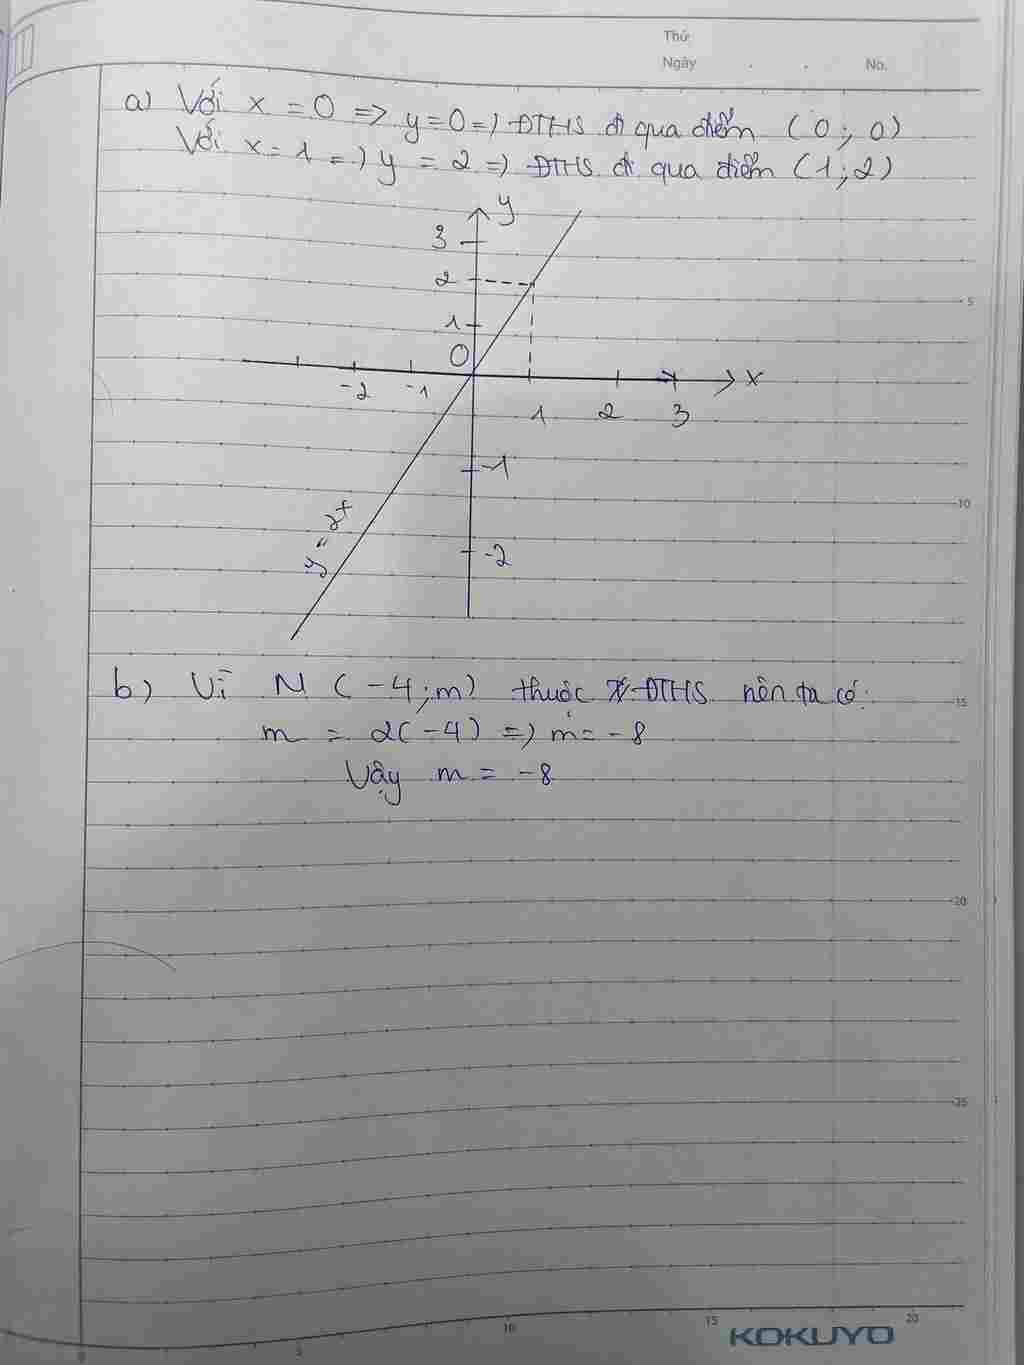 Thứ
Ngày . . No.
a) Với x = 0 => y = 0 => ĐTHS đi qua điểm (0; 0)
Với x = 1 => y = 2 => ĐTHS đi qua điểm (1; 2)
y
3
2
1
0
x
-2 -1 1 2 3
-1
-2
y = 2x
5
10
b) Vì N (-4; m) thuộc ĐTHS nên ta có:
15
m = 2(-4) => m = -8
Vậy m = -8
20
25
0 5 10 15 20
KOKUYO